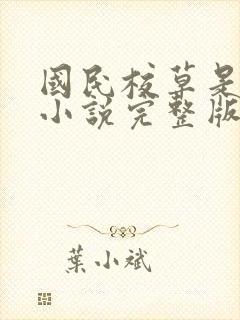 國民校草是
小說完整版
葉小斌